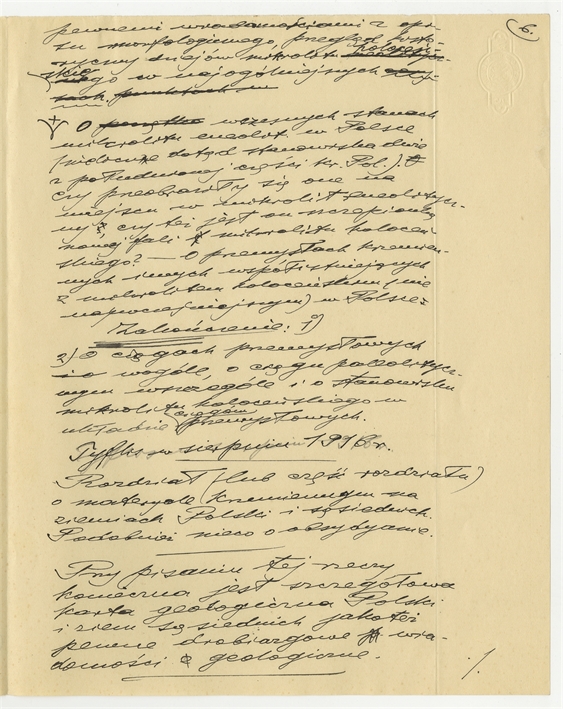 6.
pewnemi wiadomościami z opi-
su morfologicznego, przegląd histo-
ryczny dziejów mikrolitu holoceń-
skiego w najogólniejszych
O wczesnych stanach
mikrolitu eneolit. w Polsce
(widoczne dotąd stanowiska dwie
z południowej części Kr. Pol.).
czy przeobraziły się one na
miejscu w mikrolit eneolitycz-
ny? czy też jest on szczepionką
nowej fali mikrolitu holoceń-
skiego? — O przemysłach krzemien-
nych innych współistniejących
z mikrolitem holoceńskim (nie
najwcześniejszym) w Polsce.
Zakończenie: 1)
2) O ciągach przemysłowych
wogóle, o ciągu paleolitycz-
nym wszczególe i o stanowisku
mikrolitu holoceńskiego w
układzie ciągów przemysłowych.
Tyflis w sierpniu 1916 r.
Rozdział (lub część rozdziału)
o materyale krzemiennym na
ziemiach Polski i sąsiednich.
Podobnież nieco o obsydyanie.
Przy pisaniu tej rzeczy
konieczna jest szczegółowa
karta geologiczna Polski
i ziem sąsiednich jakoteż
pewne drobiazgowe wia-
domości geologiczne.
./.